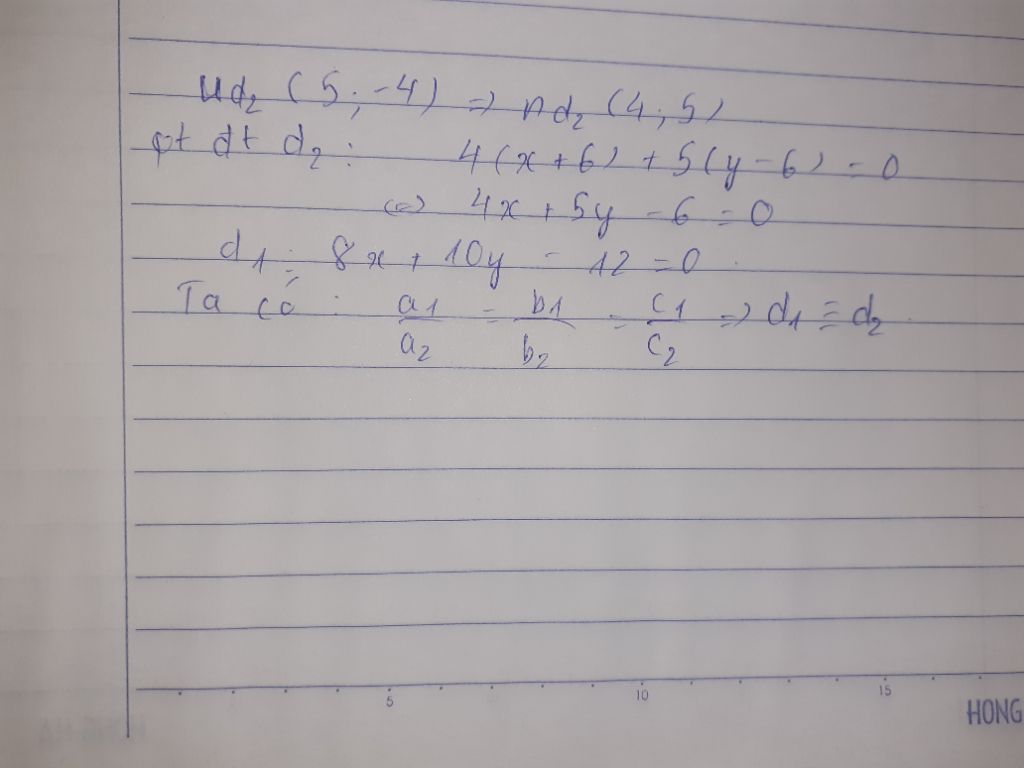 ud₂ (5; -4) => nd₂ (4; 5)
pt đt d₂: 4(x+6) + 5(y-6) = 0
<=> 4x + 5y - 6 = 0
d₁: 8x + 10y - 12 = 0.
Ta có: a₁/a₂ = b₁/b₂ = c₁/c₂ => d₁ ≡ d₂.
5 10 15
HONG